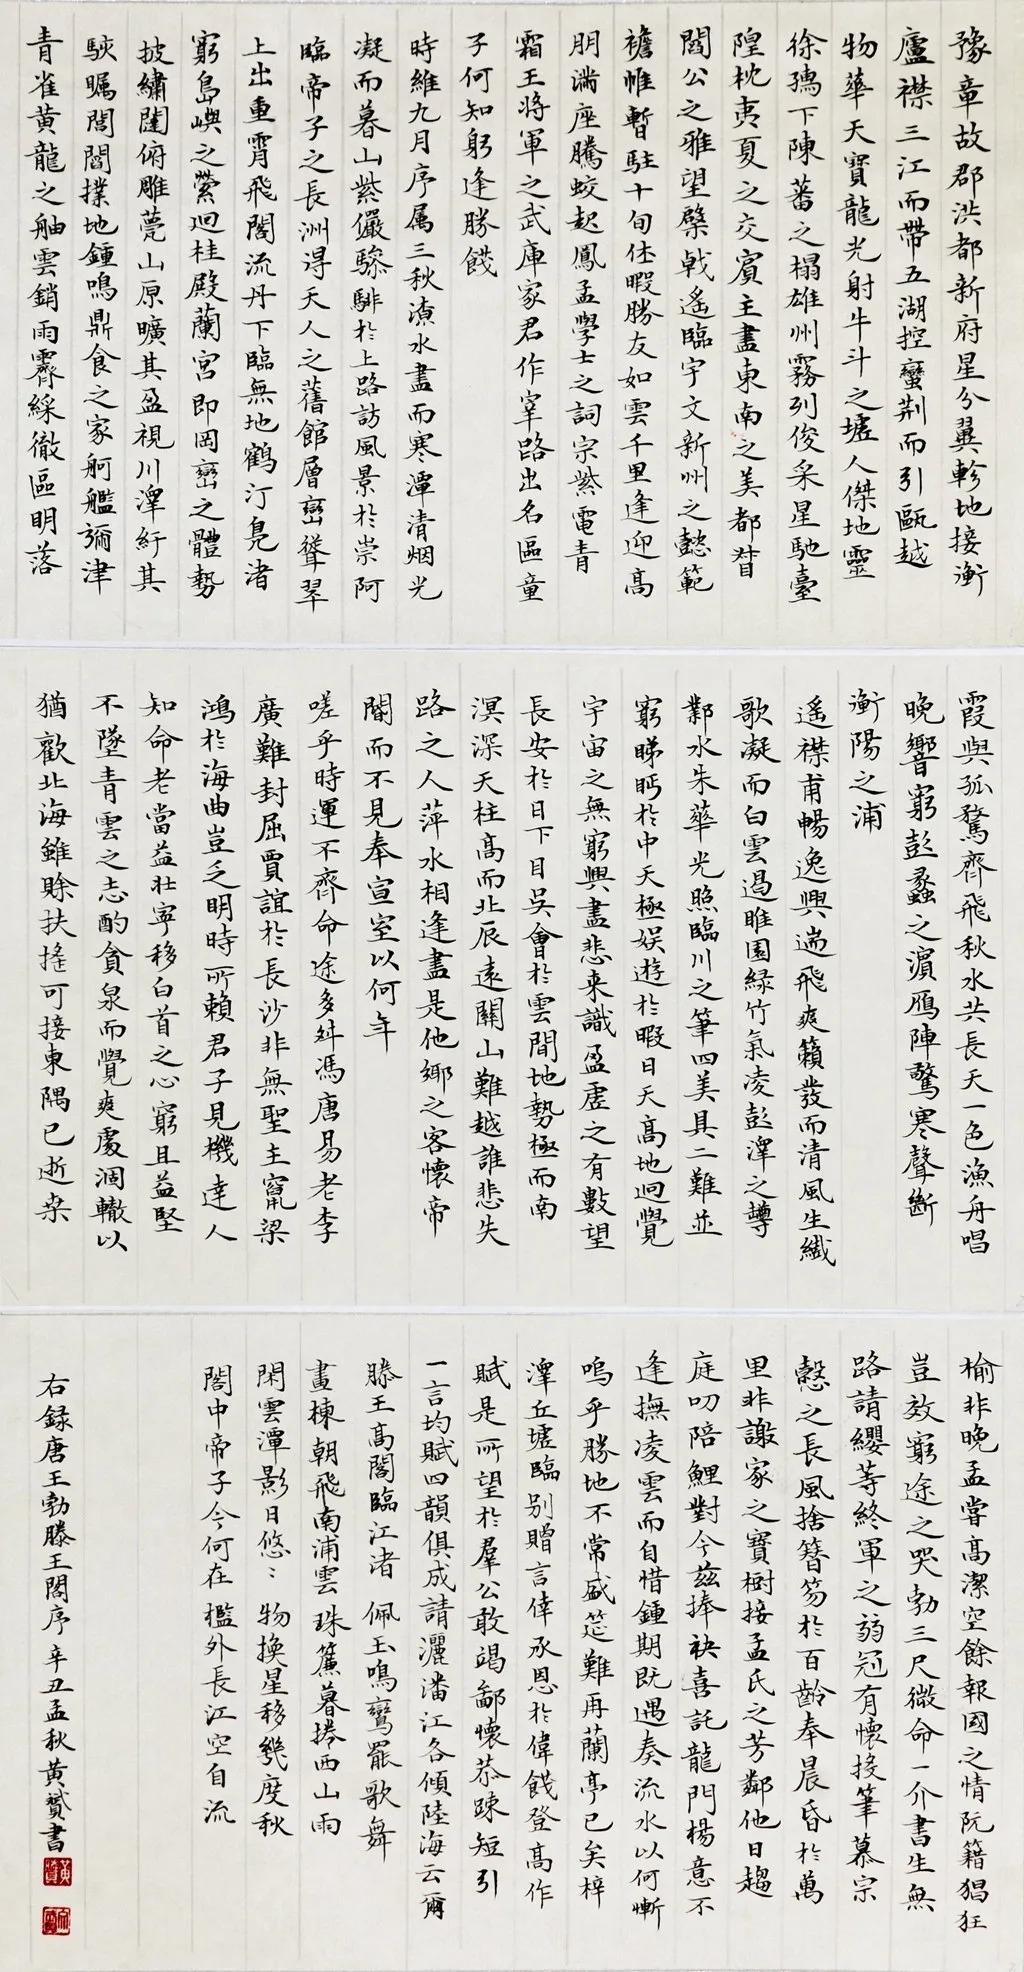 豫章故郡洪都新府星分翼軫地接衡
廬襟三江而帶五湖控蠻荆而引甌越
物華天寶龍光射牛斗之墟人傑地靈
徐孺下陳蕃之榻雄州霧列俊采星馳臺
隍枕夷夏之交賓主盡東南之美都督
閻公之雅望棨戟遙臨宇文新州之懿範
襜帷暫駐十旬休暇勝友如雲千里逢迎高
朋滿座騰蛟起鳳孟學士之詞宗紫電青
霜王將軍之武庫家君作宰路出名區童
子何知躬逢勝餞
時維九月序属三秋潦水盡而寒潭清烟光
凝而暮山紫儼驂騑於上路訪風景於崇阿
臨帝子之長洲得天人之舊館層巒聳翠
上出重霄飛閣流丹下臨無地鶴汀鳧渚
窮島嶼之縈迴桂殿蘭宮即岡巒之體勢
披繡闥俯雕甍山原曠其盈視川澤紆其
駭矚閭閻撲地鍾鳴鼎食之家舸艦彌津
青雀黄龍之舳雲銷雨霽綵徹區明落
霞與孤鶩齊飛秋水共長天一色漁舟唱
晚響窮彭蠡之濵鴈陣驚寒聲斷
衡陽之浦
遙襟甫暢逸興遄飛爽籟發而清風生纖
歌凝而白雲遏睢園緑竹氣凌彭澤之罇
鄴水朱華光照臨川之筆四美具二難並
窮睇眄於中天極娱遊於暇日天高地迥覺
宇宙之無窮興盡悲来識盈虚之有數望
長安於日下目吴會於雲間地勢極而南
溟深天柱高而北辰遠關山難越誰悲失
路之人萍水相逢盡是他鄉之客懷帝
閽而不見奉宣室以何年
嗟乎時運不齊命途多舛馮唐易老李
廣難封屈賈誼於長沙非無聖主竄梁
鴻於海曲豈乏明時所賴君子見機達人
知命老當益壯寜移白首之心窮且益堅
不墜青雲之志酌貪泉而覺爽處涸轍以
猶歡北海雖賒扶摇可接東隅已逝桒
榆非晚孟嘗高潔空餘報國之情阮籍猖狂
豈效窮途之哭勃三尺微命一介書生無
路請纓等終軍之弱冠有懷投筆慕宗
慤之長風捨簪笏於百齡奉晨昏於萬
里非謝家之寶樹接孟氏之芳鄰他日趨
庭叨陪鯉對今兹捧袂喜託龍門楊意不
逢撫凌雲而自惜鍾期既遇奏流水以何慚
嗚乎勝地不常盛筵難再蘭亭已矣梓
澤丘墟臨别贈言倖承恩於偉餞登高作
賦是所望於羣公敢竭鄙懷恭疎短引
一言均賦四韻俱成請灑潘江各傾陸海云爾
滕王高閣臨江渚 佩玉鳴鸞罷歌舞
畫棟朝飛南浦雲 珠簾暮捲西山雨
閑雲潭影日悠〻 物換星移幾度秋
閣中帝子今何在 檻外長江空自流
右録唐王勃滕王閣序 辛丑孟秋黄贇書